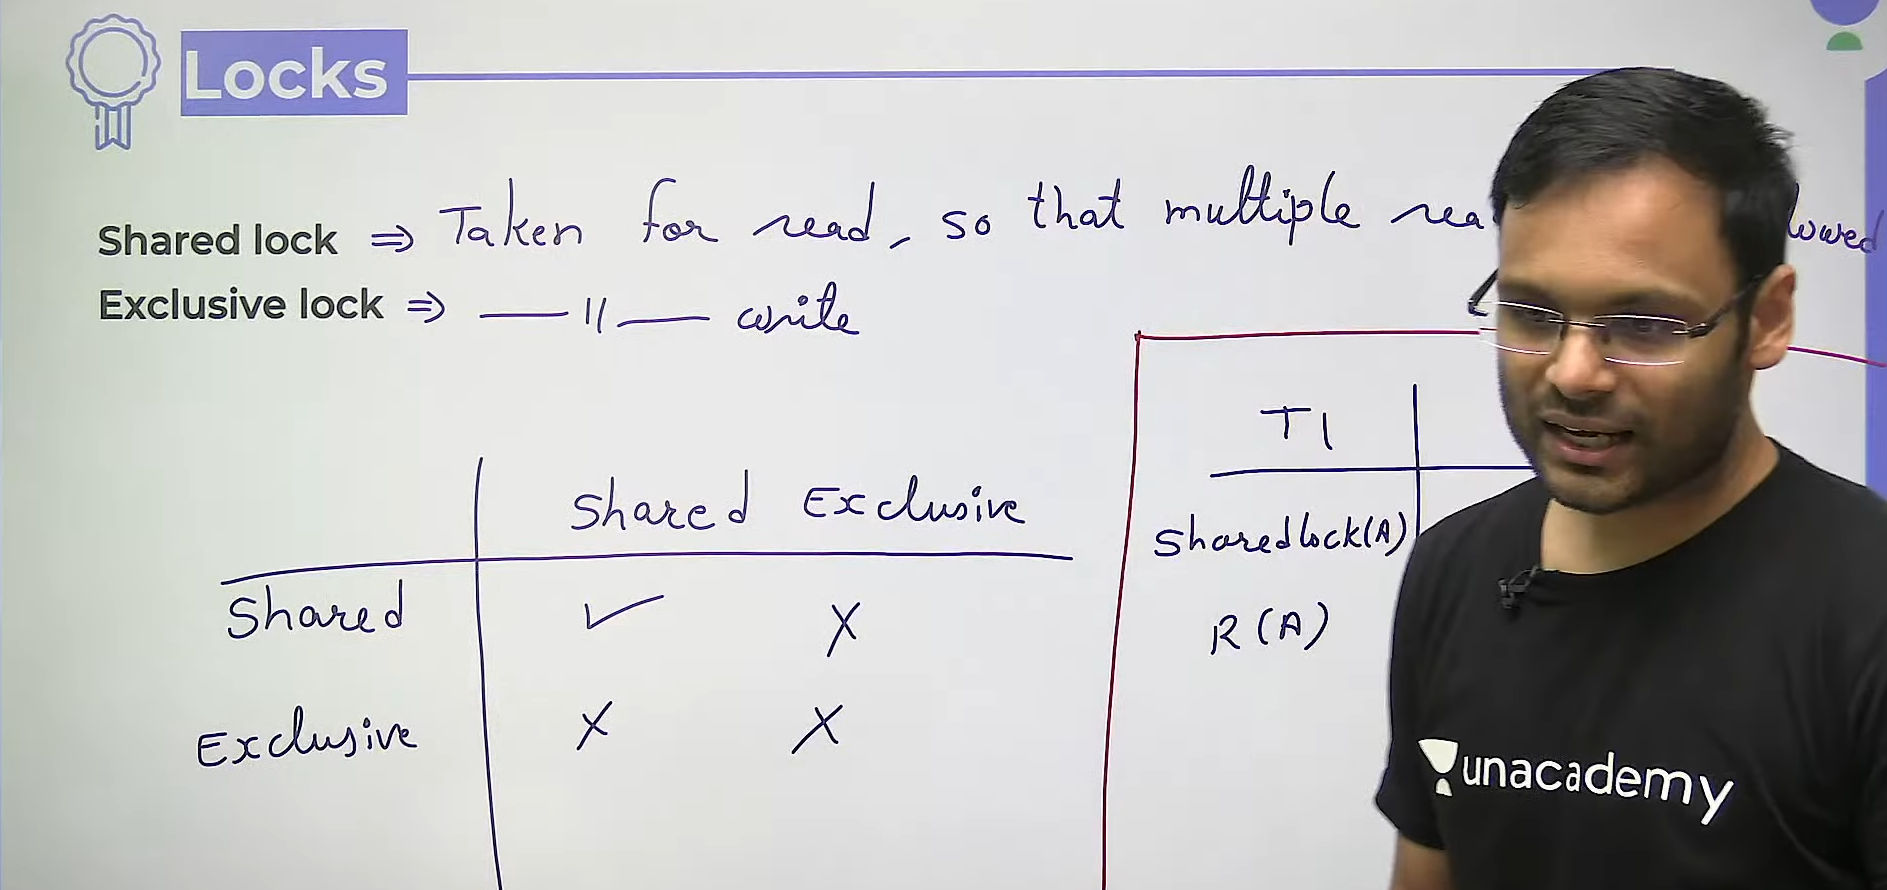 Locks
Shared lock ⇒ Taken for read, so that multiple
Exclusive lock ⇒ —— 11 —— write
Shared Exclusive
Shared ✓ X
Exclusive X X
T1
Sharedlock(A)
R(A)
unacademy